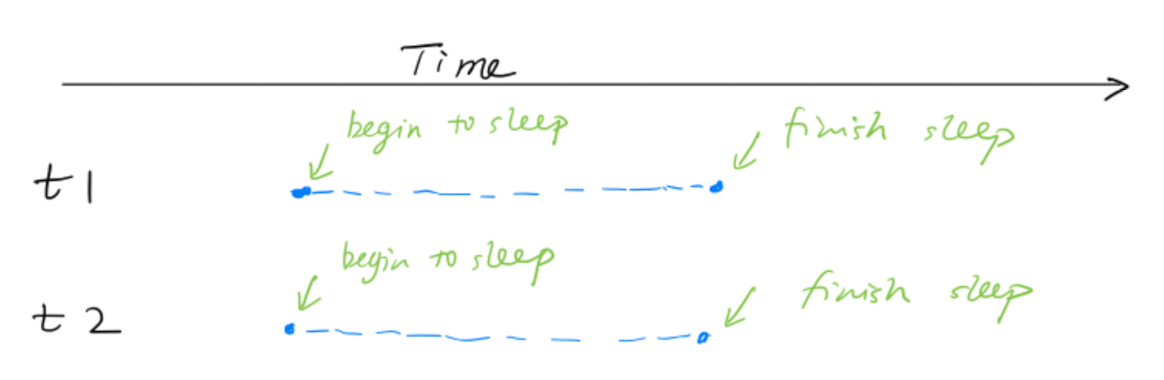 Time
begin to sleep
finish sleep
t1
begin to sleep
finish sleep
t2